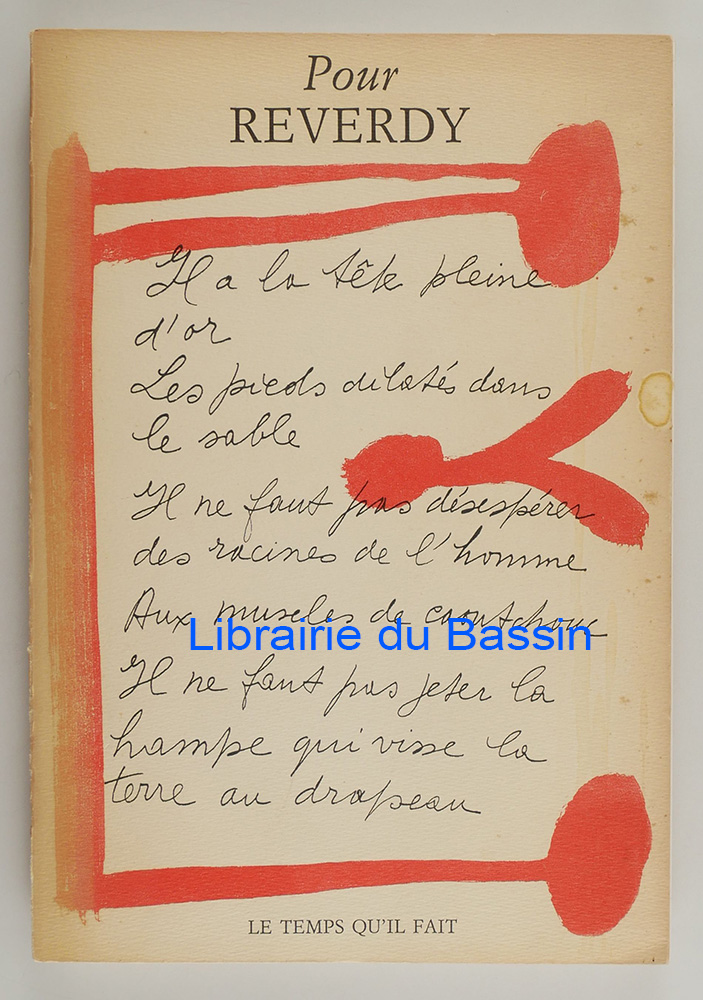 Pour
REVERDY
Il a la tête pleine
d'or
Les pieds dilatés dans
le sable
Il ne faut pas désespérer
des racines de l'homme
Aux muscles de caoutchouc
Librairie du Bassin
Il ne faut pas jeter la
hampe qui visse la
terre au drapeau
LE TEMPS QU'IL FAIT